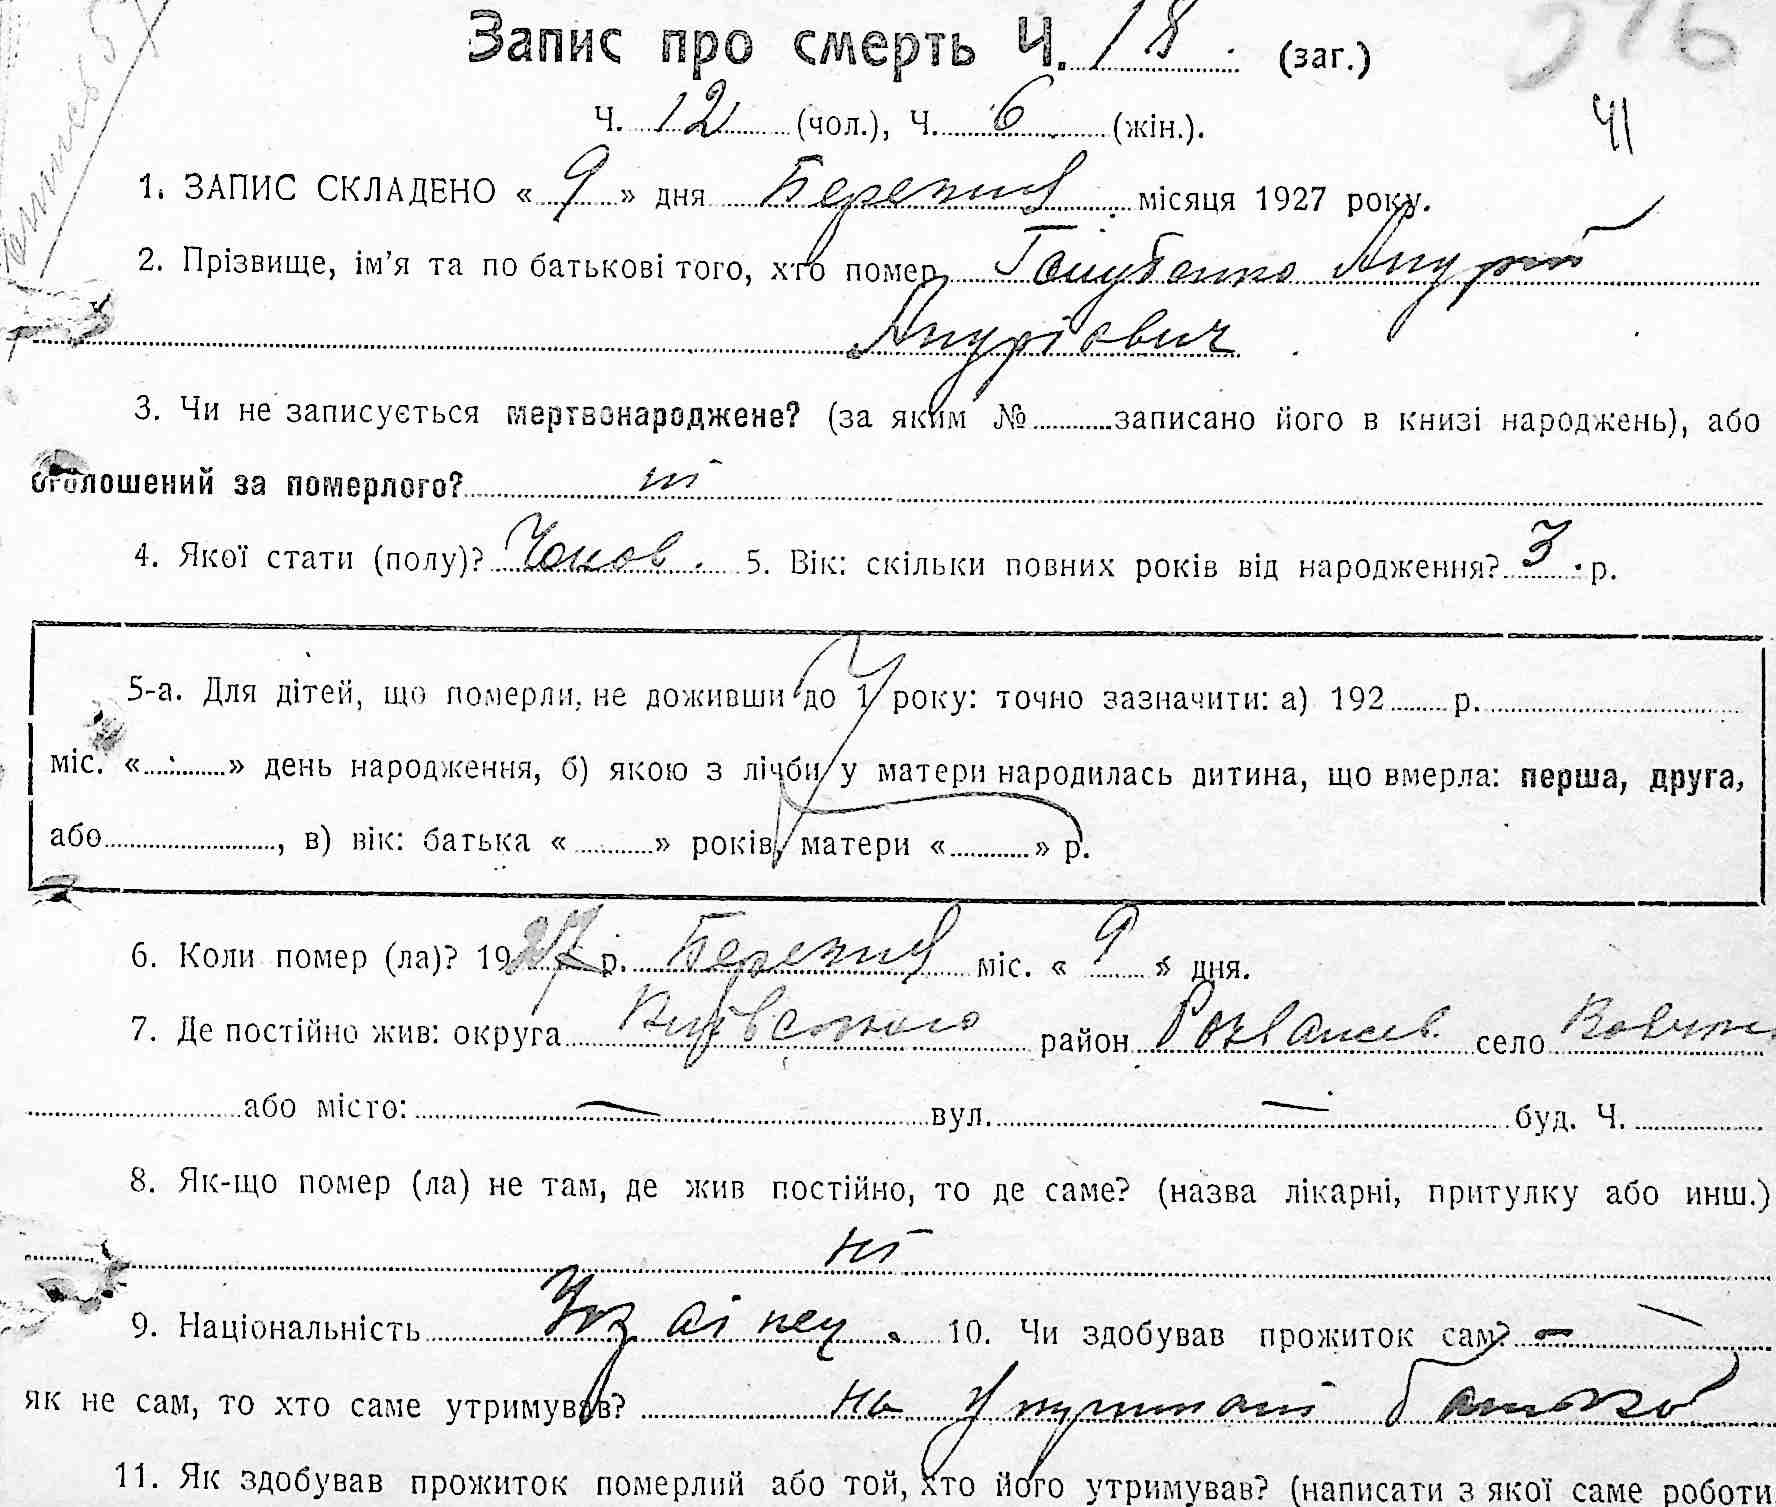 Запис про смерть Ч. 18. (заг.)
Ч. 12 (чол.), Ч. 6 (жін.).
41
1. ЗАПИС СКЛАДЕНО « 9 » дня Березня місяця 1927 року.
2. Прізвище, ім'я та по батькові того, хто помер Голубенко Андрій
Андрієвич
3. Чи не записується мертвонароджене? (за яким № записано його в книзі народжень), або
оголошений за померлого? ні
4. Якої стати (полу)? Чолов. 5. Вік: скільки повних років від народження? 3 р.
5-а. Для дітей, що померли, не доживши до 1 року: точно зазначити: а) 192 р.
міс. « » день народження, б) якою з лічби у матери народилась дитина, що вмерла: перша, друга,
або , в) вік: батька « » років, матери « » р.
6. Коли помер (ла)? 1927 р. Березня міс. « 9 » дня.
7. Де постійно жив: округа район Розважев. село
або місто: — вул. — буд. Ч.
8. Як-що помер (ла) не там, де жив постійно, то де саме? (назва лікарні, притулку або инш.)
ні
9. Національність Українец. 10. Чи здобував прожиток сам? —
як не сам, то хто саме утримував? на утриманні батьков
11. Як здобував прожиток померлий або той, хто його утримував? (написати з якої саме роботи